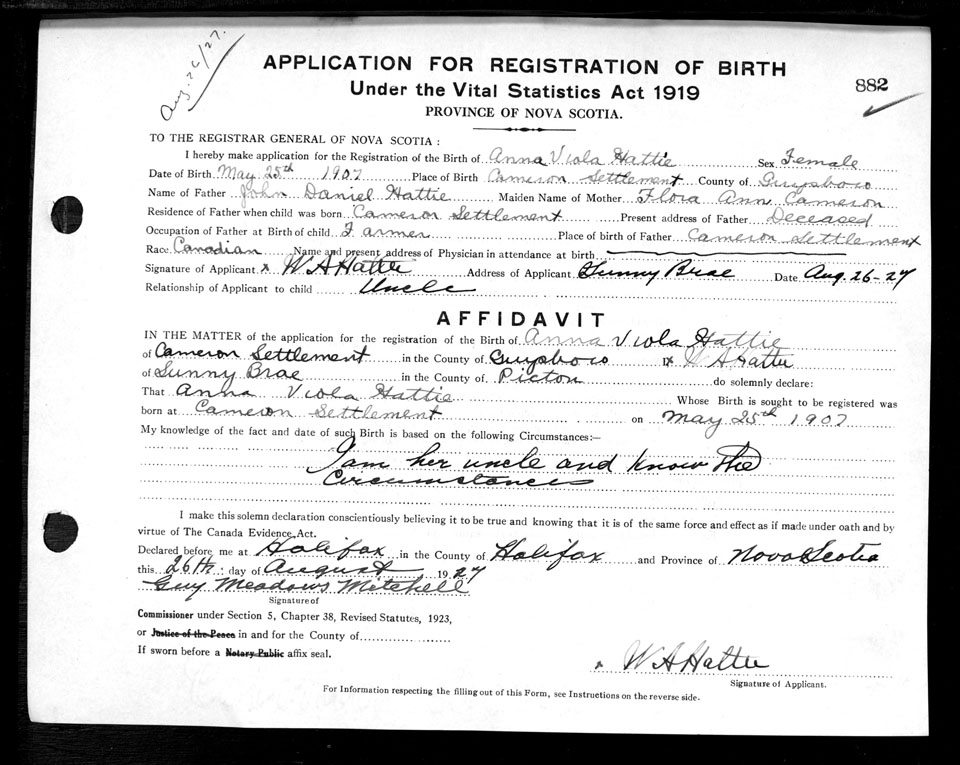 Aug. 26/27.
APPLICATION FOR REGISTRATION OF BIRTH
Under the Vital Statistics Act 1919
882
PROVINCE OF NOVA SCOTIA.
TO THE REGISTRAR GENERAL OF NOVA SCOTIA :
I hereby make application for the Registration of the Birth of Anna Viola Hattie Sex Female
Date of Birth May 25th 1907 Place of Birth Cameron Settlement County of Guysboro
Name of Father John Daniel Hattie Maiden Name of Mother Flora Ann Cameron
Residence of Father when child was born Cameron Settlement Present address of Father Deceased
Occupation of Father at Birth of child Farmer Place of birth of Father Cameron Settlement
Race Canadian Name and present address of Physician in attendance at birth
Signature of Applicant x W A Hattie Address of Applicant Sunny Brae Date Aug. 26-27
Relationship of Applicant to child Uncle
AFFIDAVIT
IN THE MATTER of the application for the registration of the Birth of Anna Viola Hattie
of Cameron Settlement in the County of Guysboro W A Hattie
of Sunny Brae in the County of Picton do solemnly declare:
That Anna Viola Hattie Whose Birth is sought to be registered was
born at Cameron Settlement on May 25th 1907
My knowledge of the fact and date of such Birth is based on the following Circumstances:—
I am her uncle and know the
Circumstances
I make this solemn declaration conscientiously believing it to be true and knowing that it is of the same force and effect as if made under oath and by
virtue of The Canada Evidence Act.
Declared before me at Halifax in the County of Halifax and Province of Nova Scotia
this 26th day of August 1927
Guy Meadows Mitchell
Signature of
Commissioner under Section 5, Chapter 38, Revised Statutes, 1923,
or Justice of the Peace in and for the County of
If sworn before a Notary Public affix seal.
x W A Hattie
Signature of Applicant.
For Information respecting the filling out of this Form, see Instructions on the reverse side.